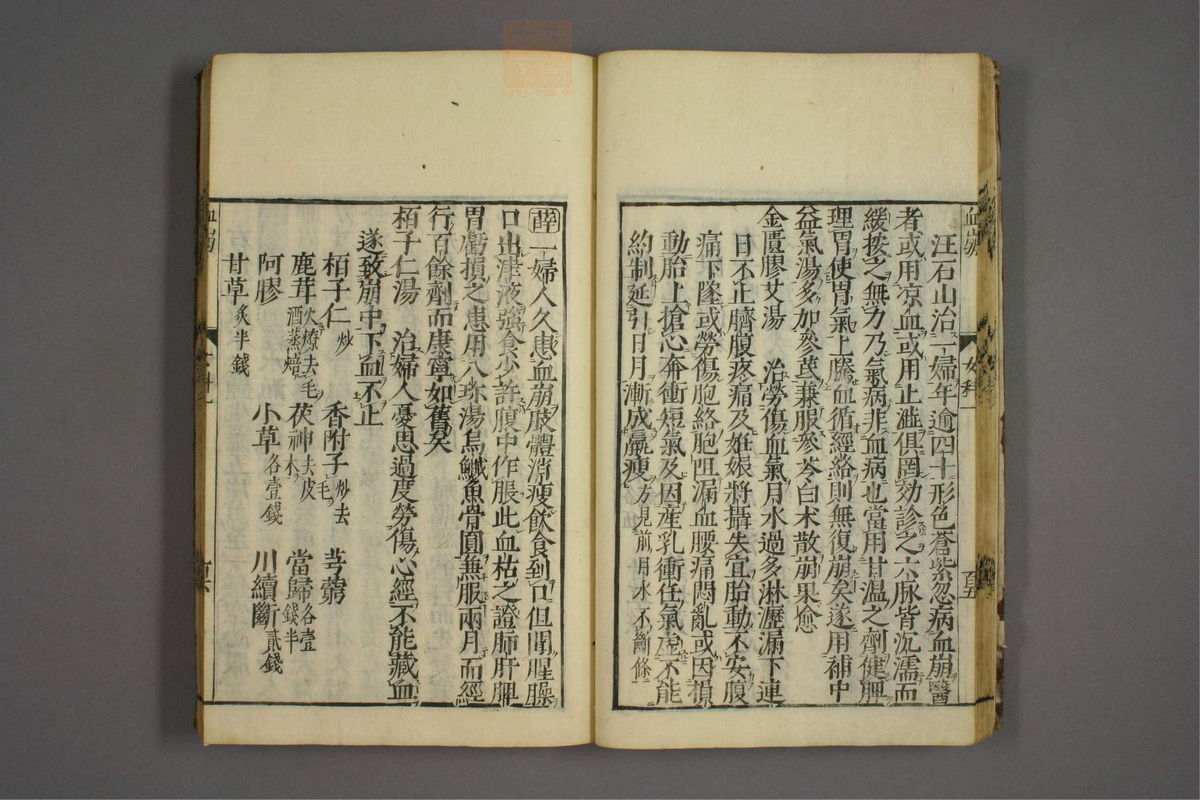 血崩
女科一
百五
汪石山治一婦年逾四十形色蒼紫忽病血崩醫
者或用凉血或用止澁俱罔効診之六脉皆沉濡而
緩按之無力乃氣病非血病也當用甘温之劑健脾
理胃使胃氣上騰血循經絡則無復崩矣遂用補中
益氣湯多加參茋兼服參苓白术散崩果愈
金匱膠艾湯　治勞傷血氣月水過多淋瀝漏下連
日不止臍腹疼痛及姙娠將攝失宜胎動不安腹
痛下墜或勞傷胞絡胞阻漏血腰痛悶亂或因損
動胎上搶心奔衝短氣及因産乳衝任氣虛不能
約制延引日月漸成羸瘦方見前月水不斷條
薛一婦人久患血崩肢體消瘦飲食到口但聞腥臊
口出津液強食少許腹中作脹此血枯之證肺肝脾
胃虧損之患用八珍湯烏鰂魚骨圓兼服兩月而經
行百餘劑而康寧如舊矣
栢子仁湯　治婦人憂思過度勞傷心經不能藏血
遂致崩中下血不止
栢子仁炒　香附子炒去毛　芎藭
鹿茸火燎去毛酒蒸焙　茯神去皮木　當歸各壹錢半
阿膠　小草各壹錢　川續斷貳錢
甘草炙半錢
血崩